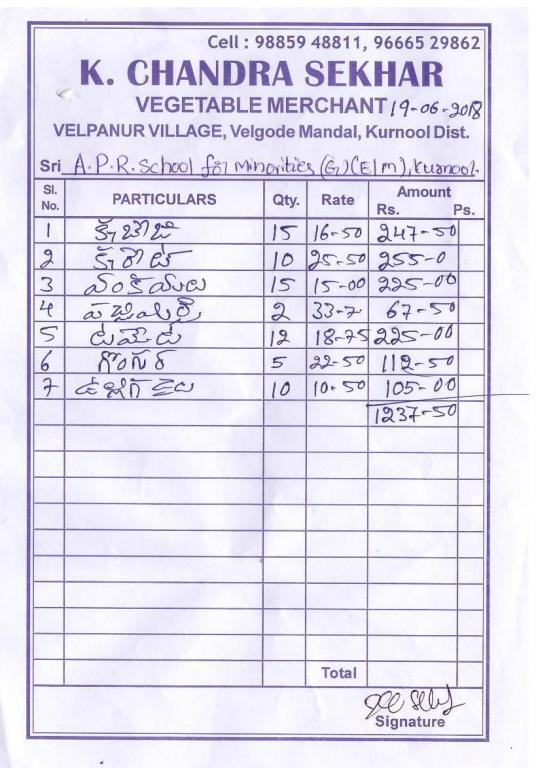 Cell : 98859 48811, 96665 29862
K. CHANDRA SEKHAR
VEGETABLE MERCHANT 19-06-2018
VELPANUR VILLAGE, Velgode Mandal, Kurnool Dist.
Sri A.P.R. School for Minorities (G) (E/m), Kurnool.
Sl. No. PARTICULARS Qty. Rate Amount Rs. Ps.
1 క్యాబేజి 15 16-50 247-50
2 క్యారెట్ 10 25-50 255-0
3 వంకాయలు 15 15-00 225-00
4 పచ్చిమిర్చి 2 33-7 67-50
5 టమేట 12 18-75 225-00
6 గోంగూర 5 22-50 112-50
7 10 10-50 105-00
1237-50
Total
Signature